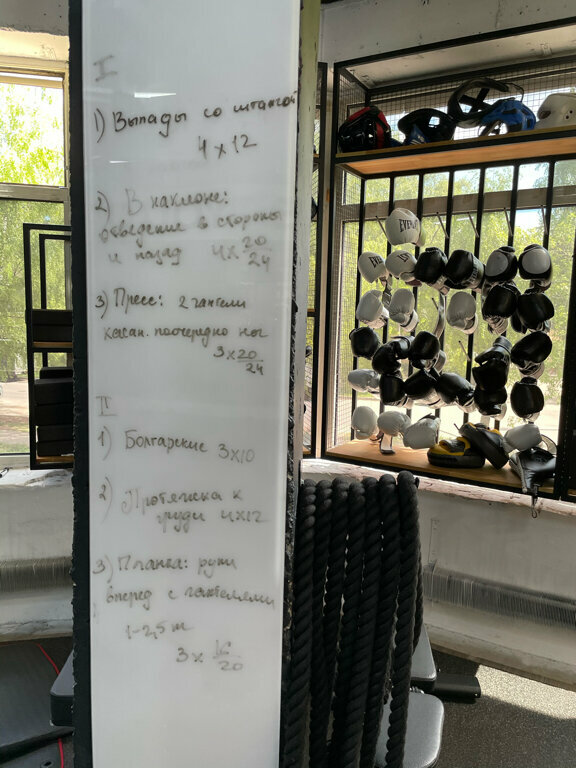 I
1) Выпады со штангой
4 x 12
2) В наклоне:
отведение в стороны
и назад 4 x 20/24
3) Пресс: 2 гантели
касан. поочередно ног
3 x 20/24
II
1) Болгарские 3x10
2) Протяжка к
груди 4x12
3) Планка: руки
вперед с гантелями
1-2,5
3 x 16/20
EVERLAST